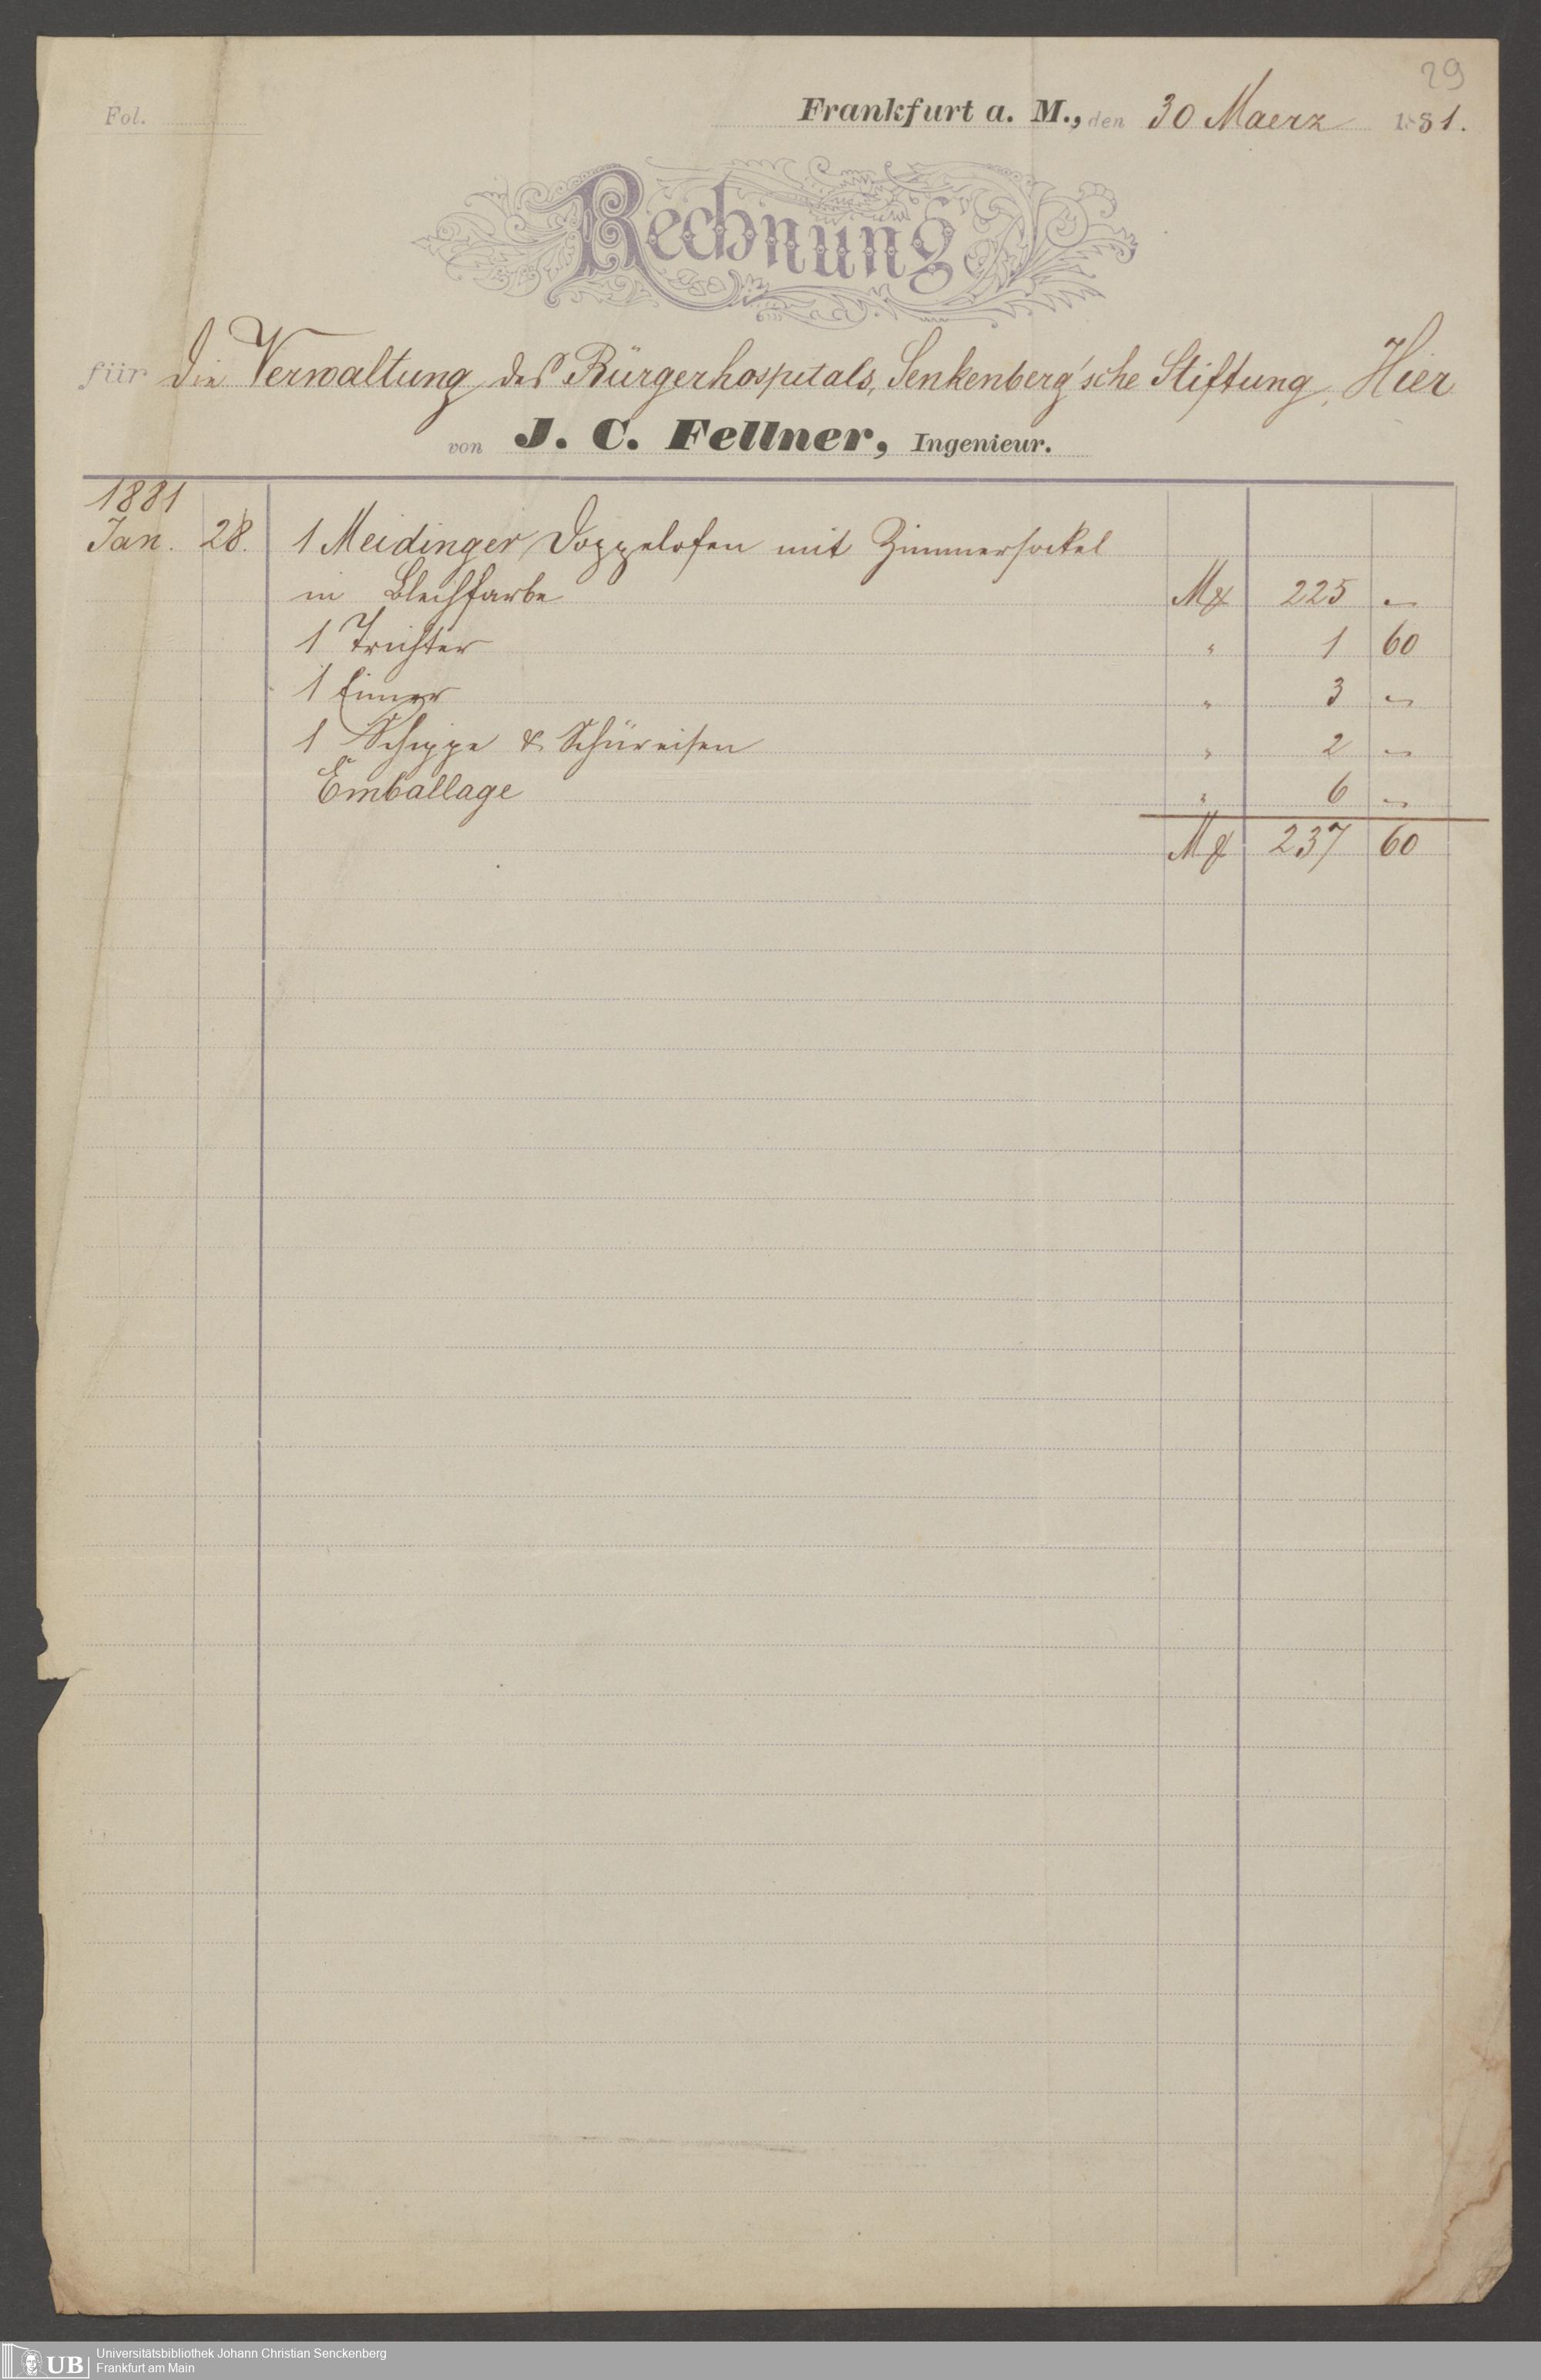 29
Fol.
Frankfurt a. M., den 30 Maerz 1881.
Rechnung
für die Verwaltung des Bürgerhospitals, Senkenberg'sche Stiftung, Hier
von J. C. Fellner, Ingenieur.
1881
Jan. 28. 1 Meidinger Doppelofen mit Zimmersockel
in Blechfarbe M 225 —
1 Trichter " 1 60
1 Eimer " 3 —
1 Schippe & Schüreisen " 2 —
Emballage " 6 —
M 237 60
UB Universitätsbibliothek Johann Christian Senckenberg
Frankfurt am Main